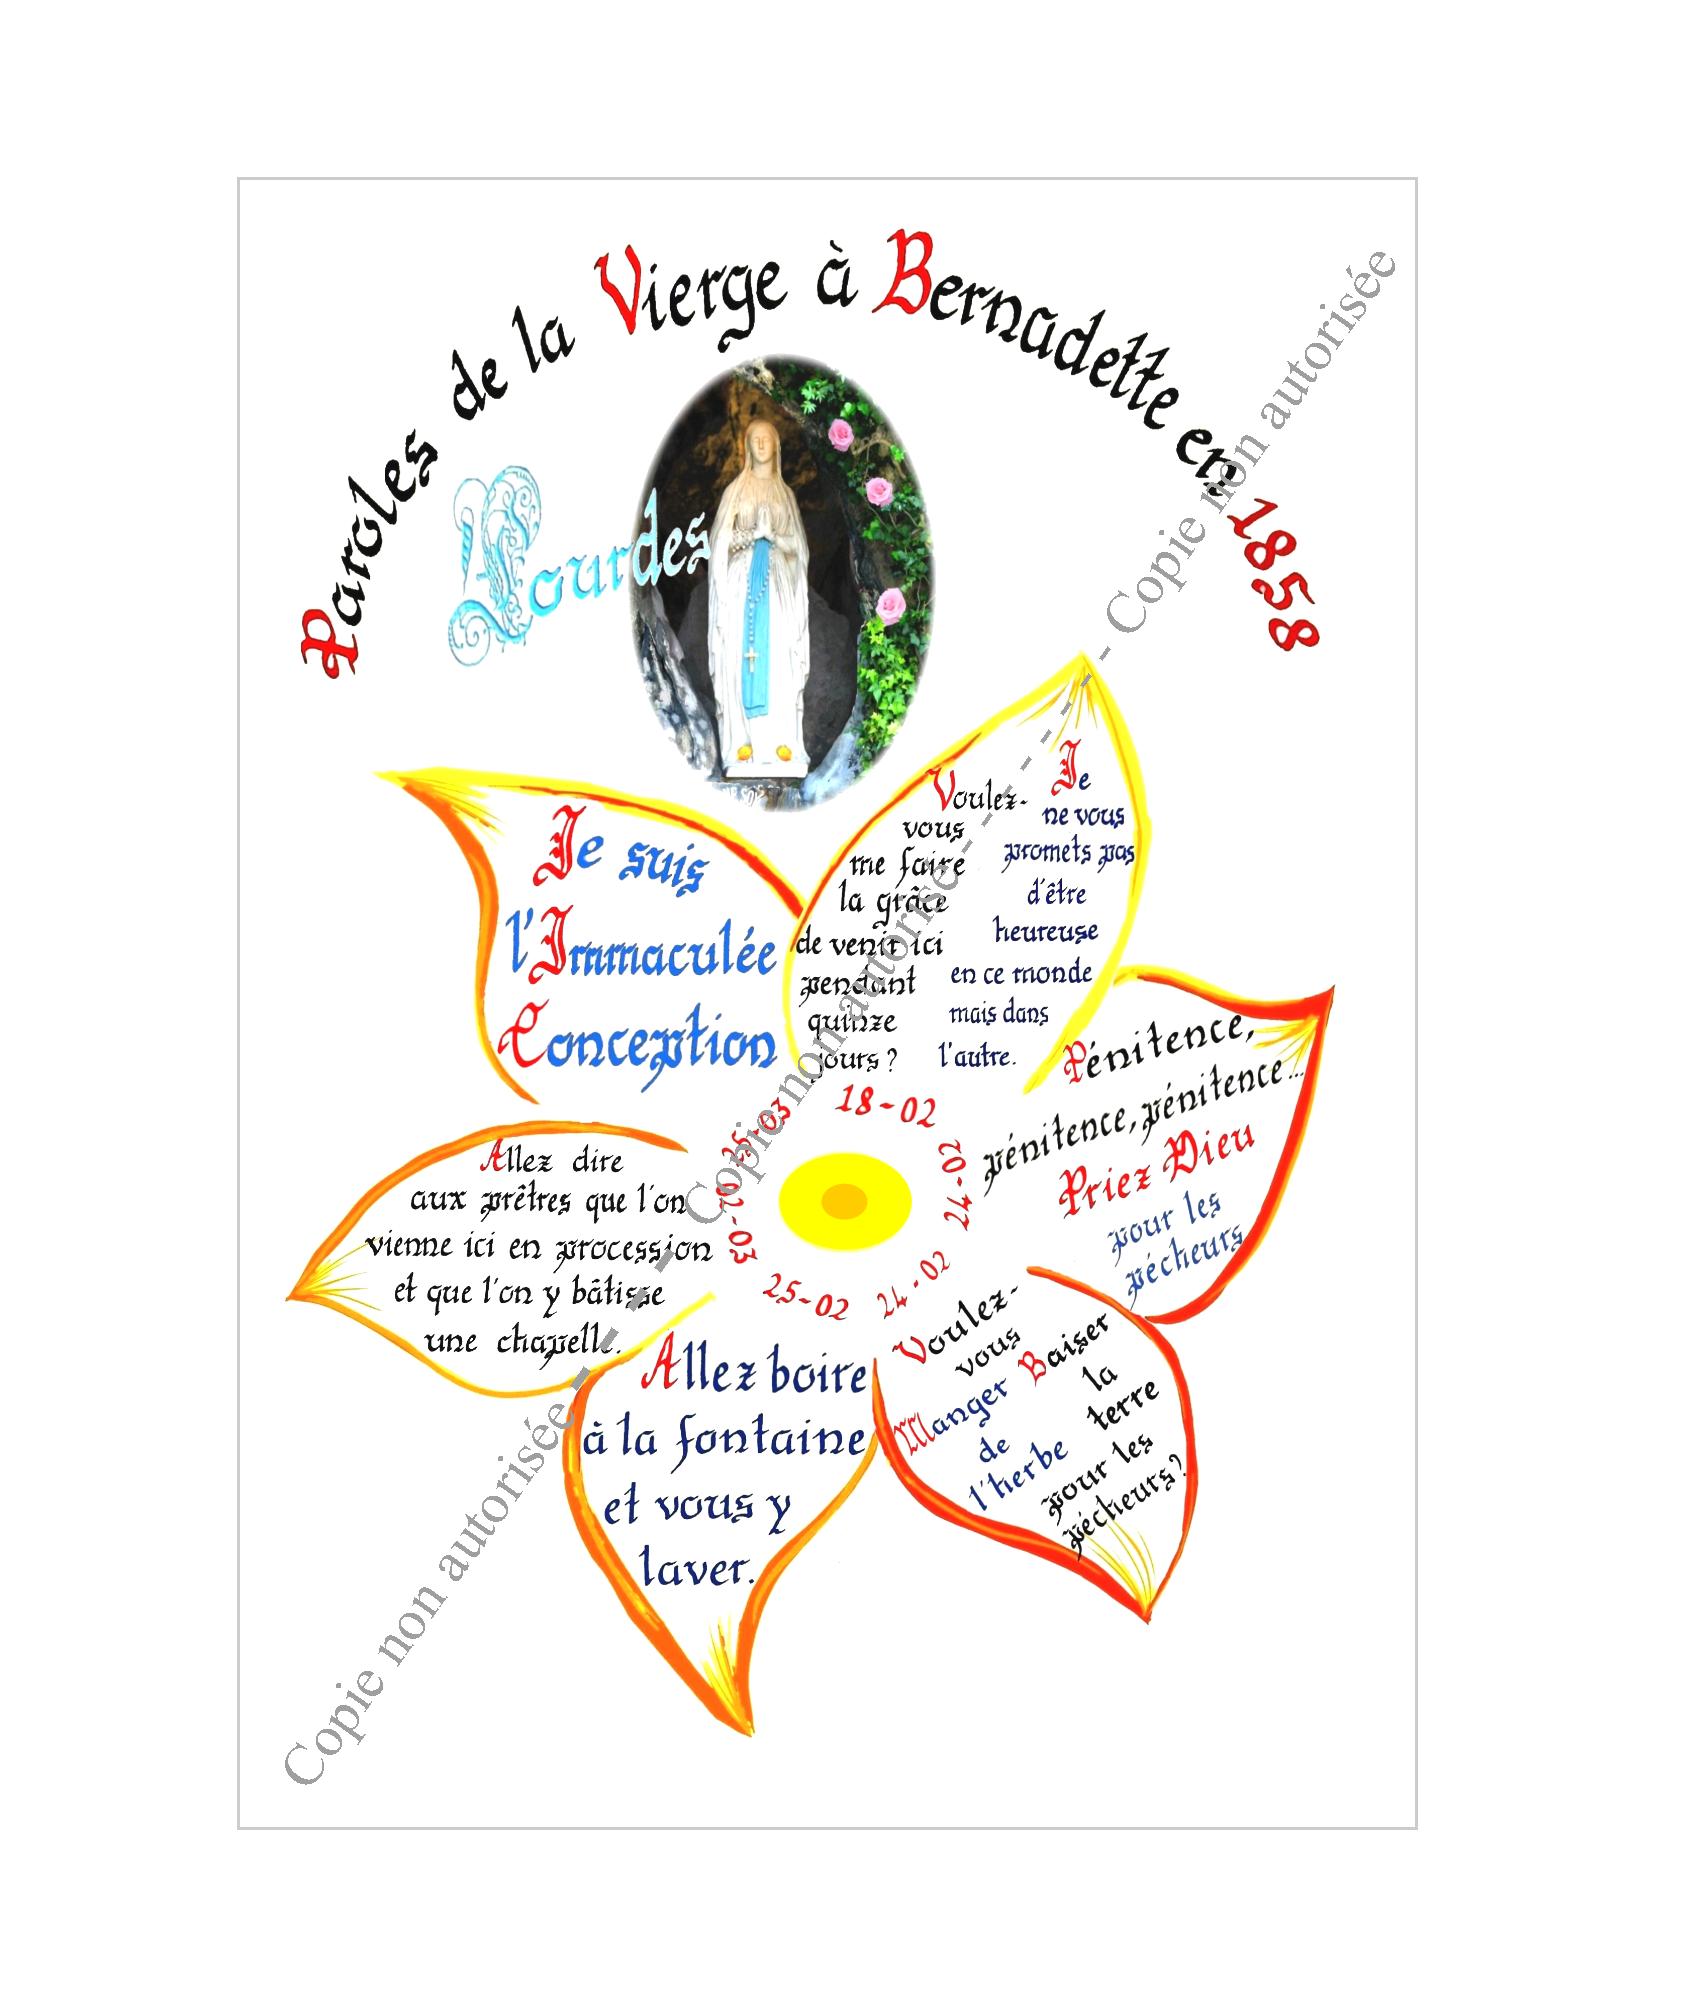 Paroles de la Vierge à Bernadette en 1858
Lourdes
Je suis
l'Immaculée
Conception
Voulez-
vous
me faire
la grâce
de venir ici
pendant
quinze
jours ?
Je
ne vous
promets pas
d'être
heureuse
en ce monde
mais dans
l'autre.
Pénitence,
pénitence, pénitence...
Priez Dieu
pour les
pécheurs
Voulez-
vous
Manger
de
l'herbe
Baiser
la
terre
pour les
pécheurs ?
Allez boire
à la fontaine
et vous y
laver.
Allez dire
aux prêtres que l'on
vienne ici en procession
et que l'on y bâtisse
une chapelle.
18-02
24-02
24-02
25-02
02-03
25-03
Copie non autorisée - - - - - - Copie non autorisée - - - - - - Copie non autorisée